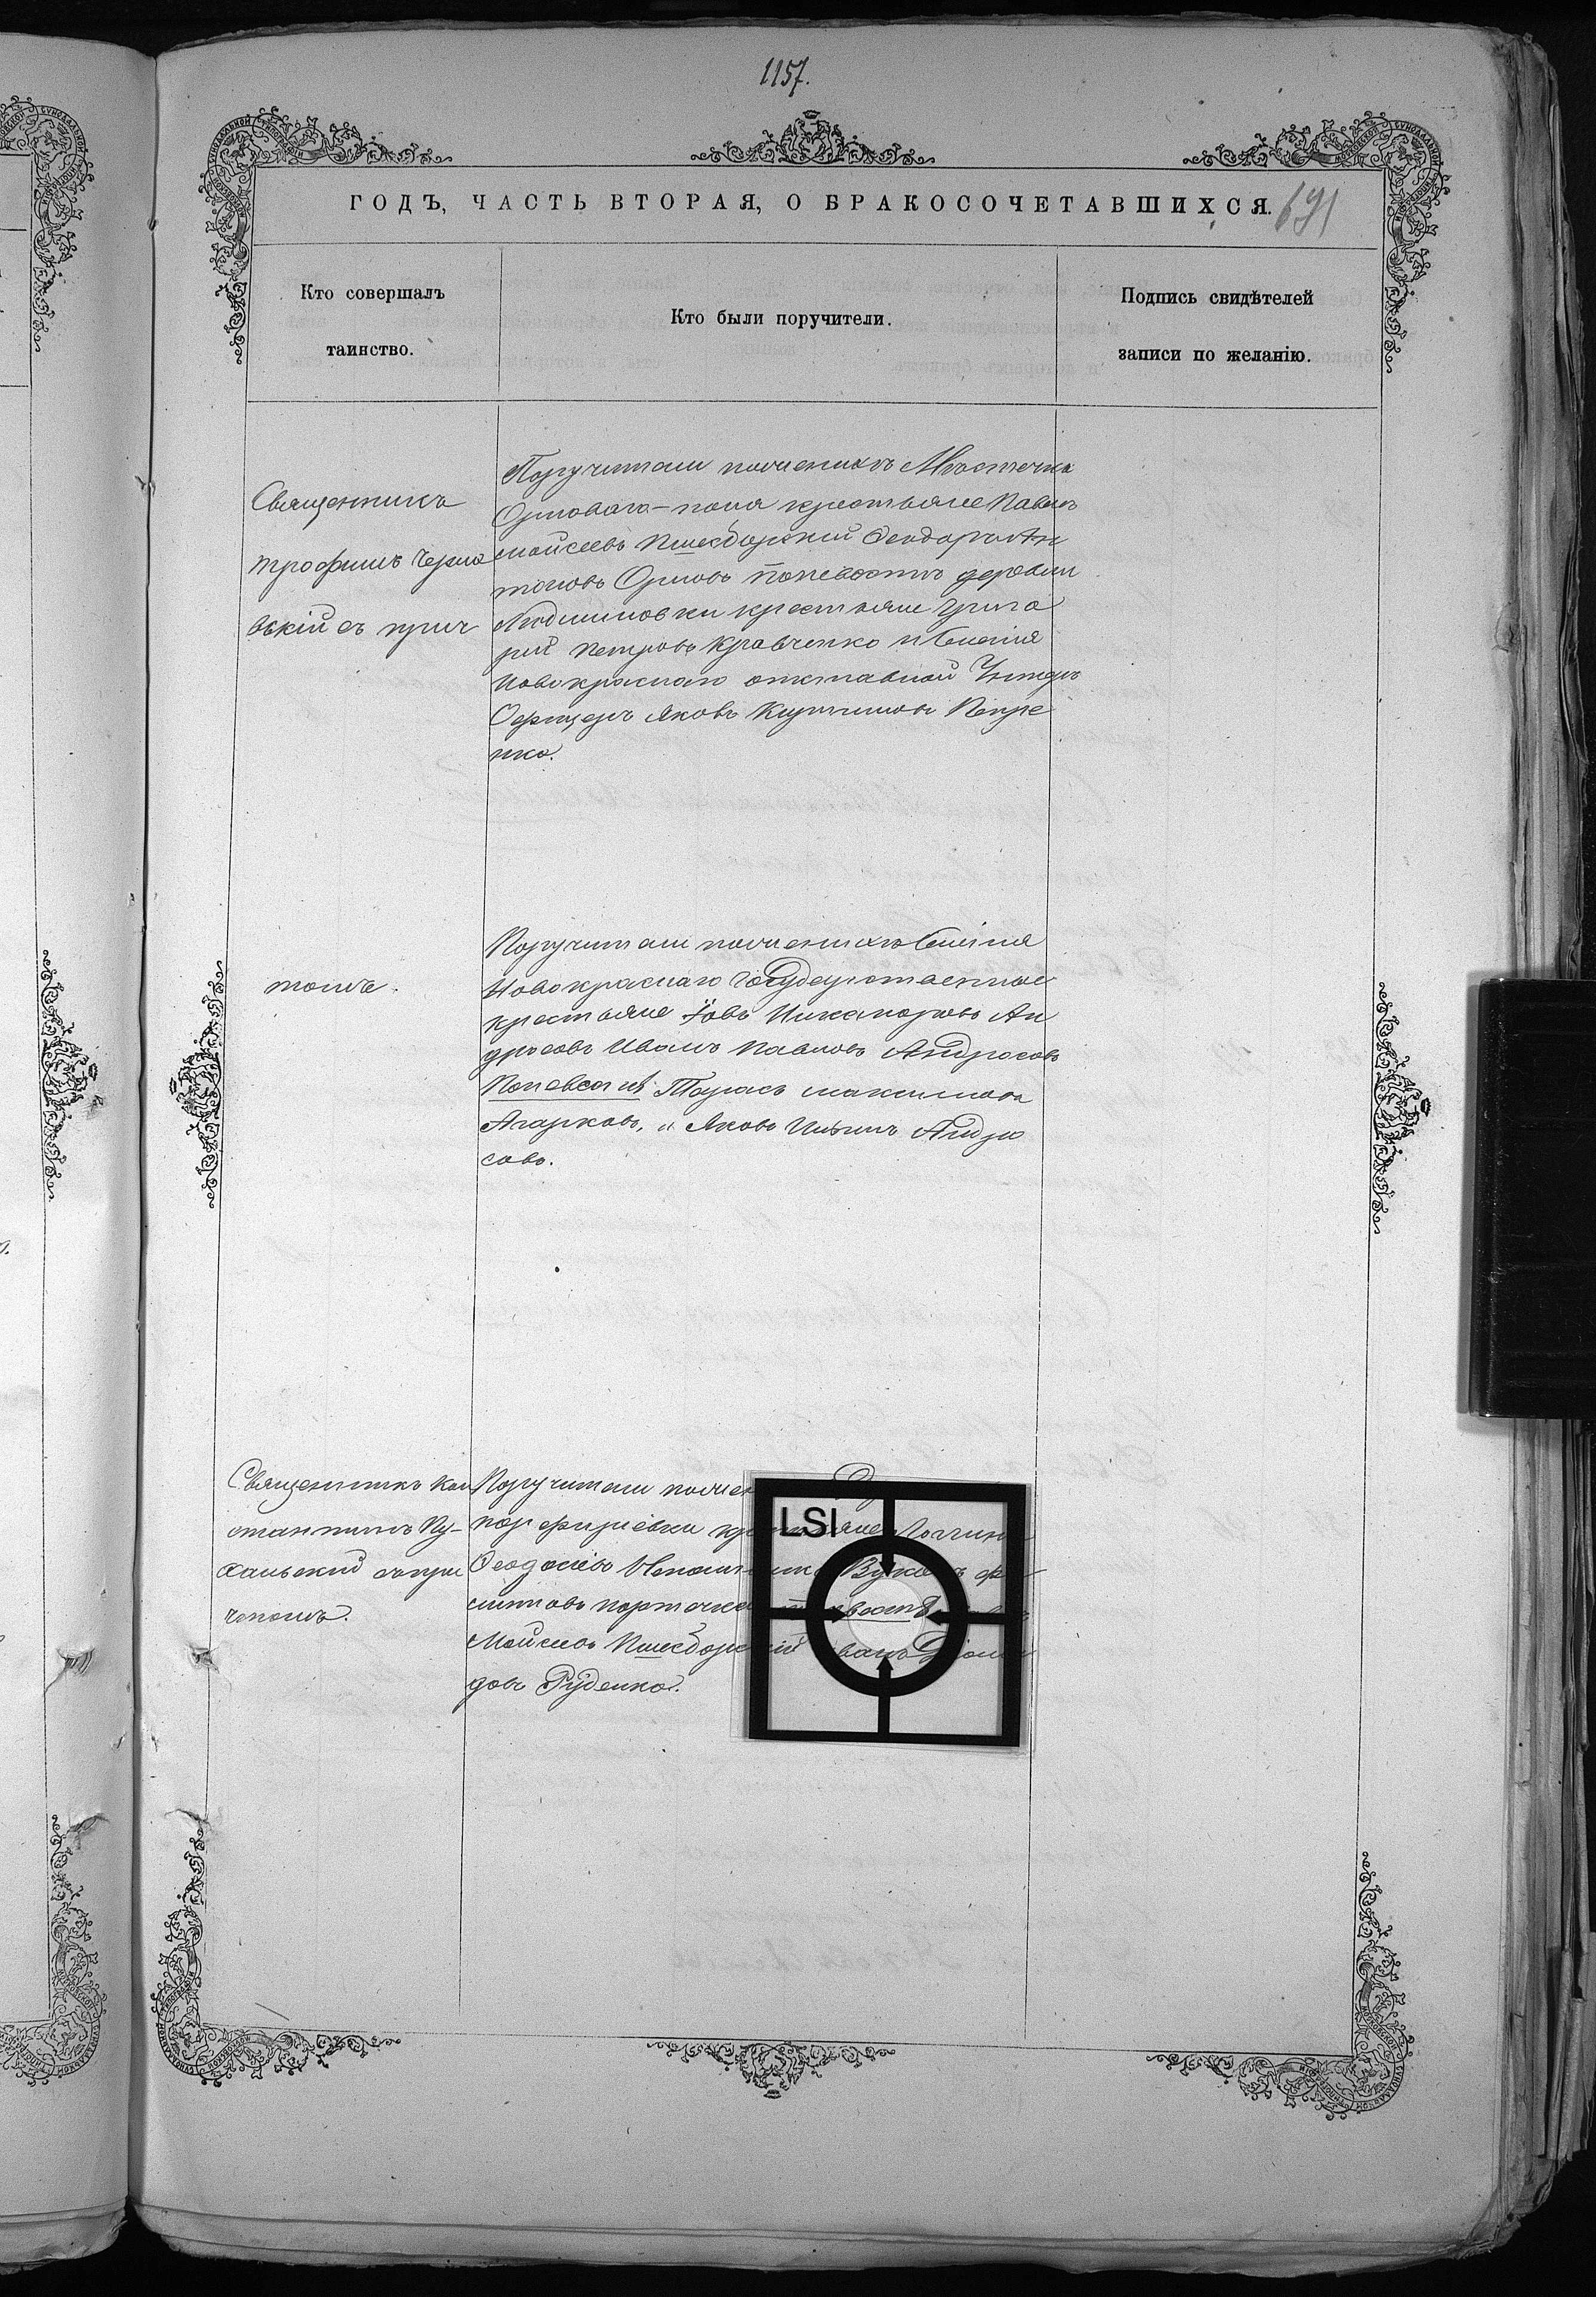 1157.
ГОДЪ, ЧАСТЬ ВТОРАЯ, О БРАКОСОЧЕТАВШИХСЯ.
691
Кто совершалъ
таинство.
Кто были поручители.
Подпись свидѣтелей
записи по желанію.
Священникъ
Трофимъ Черно
вскій съ прич
Поручители по женихѣ Мѣстечка
Орлова-поля крестьяне Павелъ
Моисеевъ Феодоръ Ан
тоновъ Орловъ по невѣстѣ деревни
крестьяне Григо
рій Петровъ Кравченко и Селенія
Новокраснаго отставной Унтеръ
Офицеръ Яковъ Петре
нко.
томъ.
Поручители по женихѣ Селенія
Новокраснаго Государственные
крестьяне Іовъ Никаноровъ Ан
дросовъ Иванъ Павловъ Андросовъ
По невѣстѣ Тарасъ Максимовъ
Агарковъ, и Яковъ Ильинъ Андро
совъ.
Священникъ Кон
стантинъ Пу-
хальскій съ при
чтомъ.
Поручители
порфиріевки Логгинъ
Феодосіевъ
Моисеевъ
довъ Руденко.
LSI